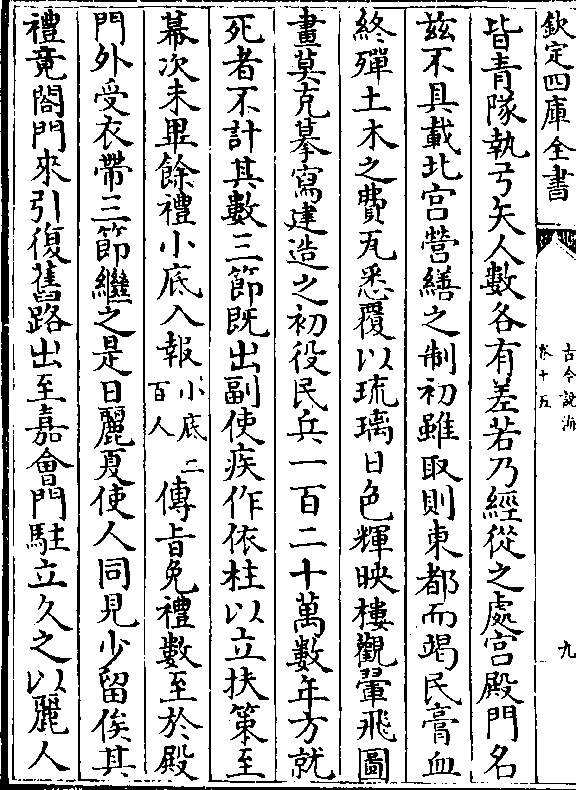 欽定四庫全書
古今說海
卷十五
九
皆青隊執弓矢人數各有差若乃經從之處宫殿門名
兹不具載北宫營繕之制初雖取則東都而竭民膏血
終殫土木之費瓦悉覆以琉璃日色輝映樓觀翬飛圖
畫莫克摹寫建造之初役民兵一百二十萬數年方就
死者不計其數三節既出副使疾作依柱以立扶策至
幕次未畢餘禮小底入報小底二百人傳旨免禮數至於殿
門外受衣帶三節繼之是日麗夏使人同見少留俟其
禮竟閤門來引復舊路出至嘉會門駐立久之以麗人